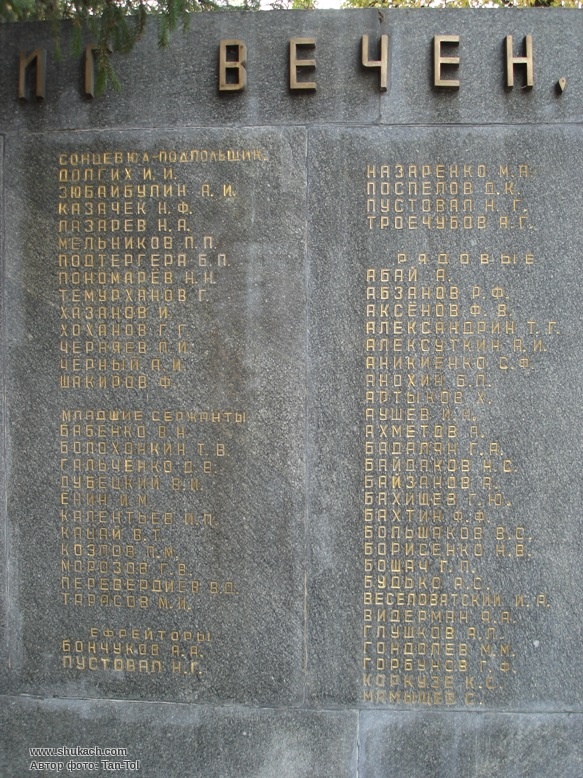 ИГ ВЕЧЕН,
СОНЦЕВ Ю.А.-ПОДПОЛЬЩИК.
ДОЛГИХ И.И.
ЗЮБАЙБУЛИН А.И.
КАЗАЧЕК Н.Ф.
ЛАЗАРЕВ Н.А.
МЕЛЬНИКОВ П.П.
ПОДТЕРГЕРА Б.П.
ПОНОМАРЕВ Н.Н.
ТЕМУРХАНОВ Г.
ХАЗАНОВ И.
ХОХАНОВ Г.Г.
ЧЕРНЫЙ А.И.
ШАКИРОВ Ф.
МЛАДШИЕ СЕРЖАНТЫ
БАБЕНКО В.Н.
БОЛОХОНКИН Т.В.
ГАЛЬЧЕНКО Д.В.
ЛУБЕЦКИЙ В.И.
ЕЛИН И.М.
КАЛЕНТЬЕВ И.П.
КЛЦАЙ В.Т.
КОЗЛОВ П.М.
МОРОЗОВ Г.В.
ПЕРЕВЕРДИЕВ В.Д.
ТАРАСОВ М.И.
ЕФРЕЙТОРЫ
БОНЧУКОВ А.А.
ПУСТОВАЛ Н.Г.
НАЗАРЕНКО М.А.
ПОСПЕЛОВ Д.К.
ПУСТОВАЛ Н.Г.
ТРОЕЧУБОВ А.Г.
РЯДОВЫЕ
АБАЙ А.
АБЗАНОВ Р.Ф.
АКСЁНОВ Ф.В.
АЛЕКСАНДРИН Т.Г.
АЛЕКСУТКИН А.И.
АНИКИЕНКО С.Ф.
АНОХИН Б.Л.
АРТЫКОВ Х.
АУШЕВ И.Н.
АХМЕТОВ А.
БАДАЛЯН Г.А.
БАЙДАКОВ Н.С.
БАЙЗАНОВ А.
БАХИШЕВ Г.Ю.
БАХТИН Ф.Ф.
БОЛЬШАКОВ В.С.
БОРИСЕНКО Н.В.
БОШАЧ Г.П.
БУДЬКО А.С.
ВЕСЕЛОВАТСКИЙ И.А.
ВИДЕРМАН А.А.
ГЛУШКОВ А.Л.
ГОНДОЛЕВ М.М.
ГОРБУНОВ Г.Ф.
КОРКУЗЕ К.С.
МАМЫШЕВ С.
www.shukach.com
Автор фото: Tan-Tol